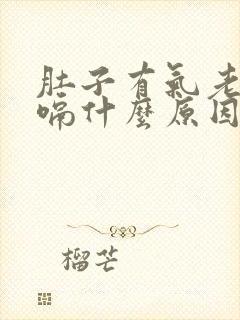 肚子有氣老
嗝什麼原因
榴芒